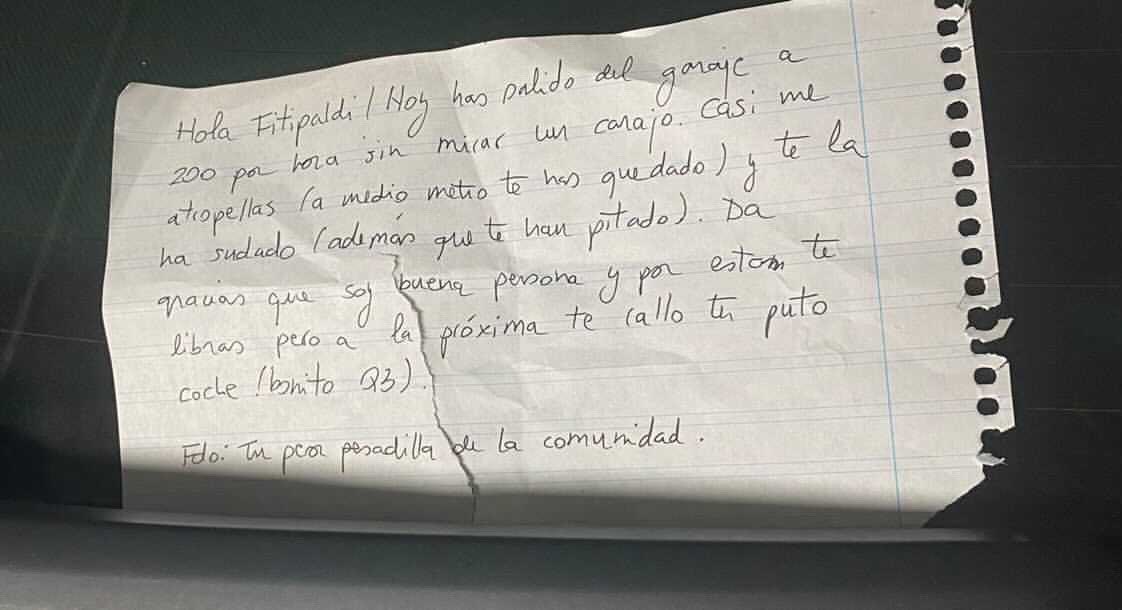 Hola Fitipaldi! Hoy has salido del garaje a
200 por hora sin mirar un carajo. Casi me
atropellas (a medio metro te has quedado) y te la
ha sudado (además que te han pitado). Da
gracias que soy buena persona y por estam te
libras pero a la próxima te callo tu puto
coche (bonito Q3).
Fdo: Tu peor pesadilla de la comunidad.